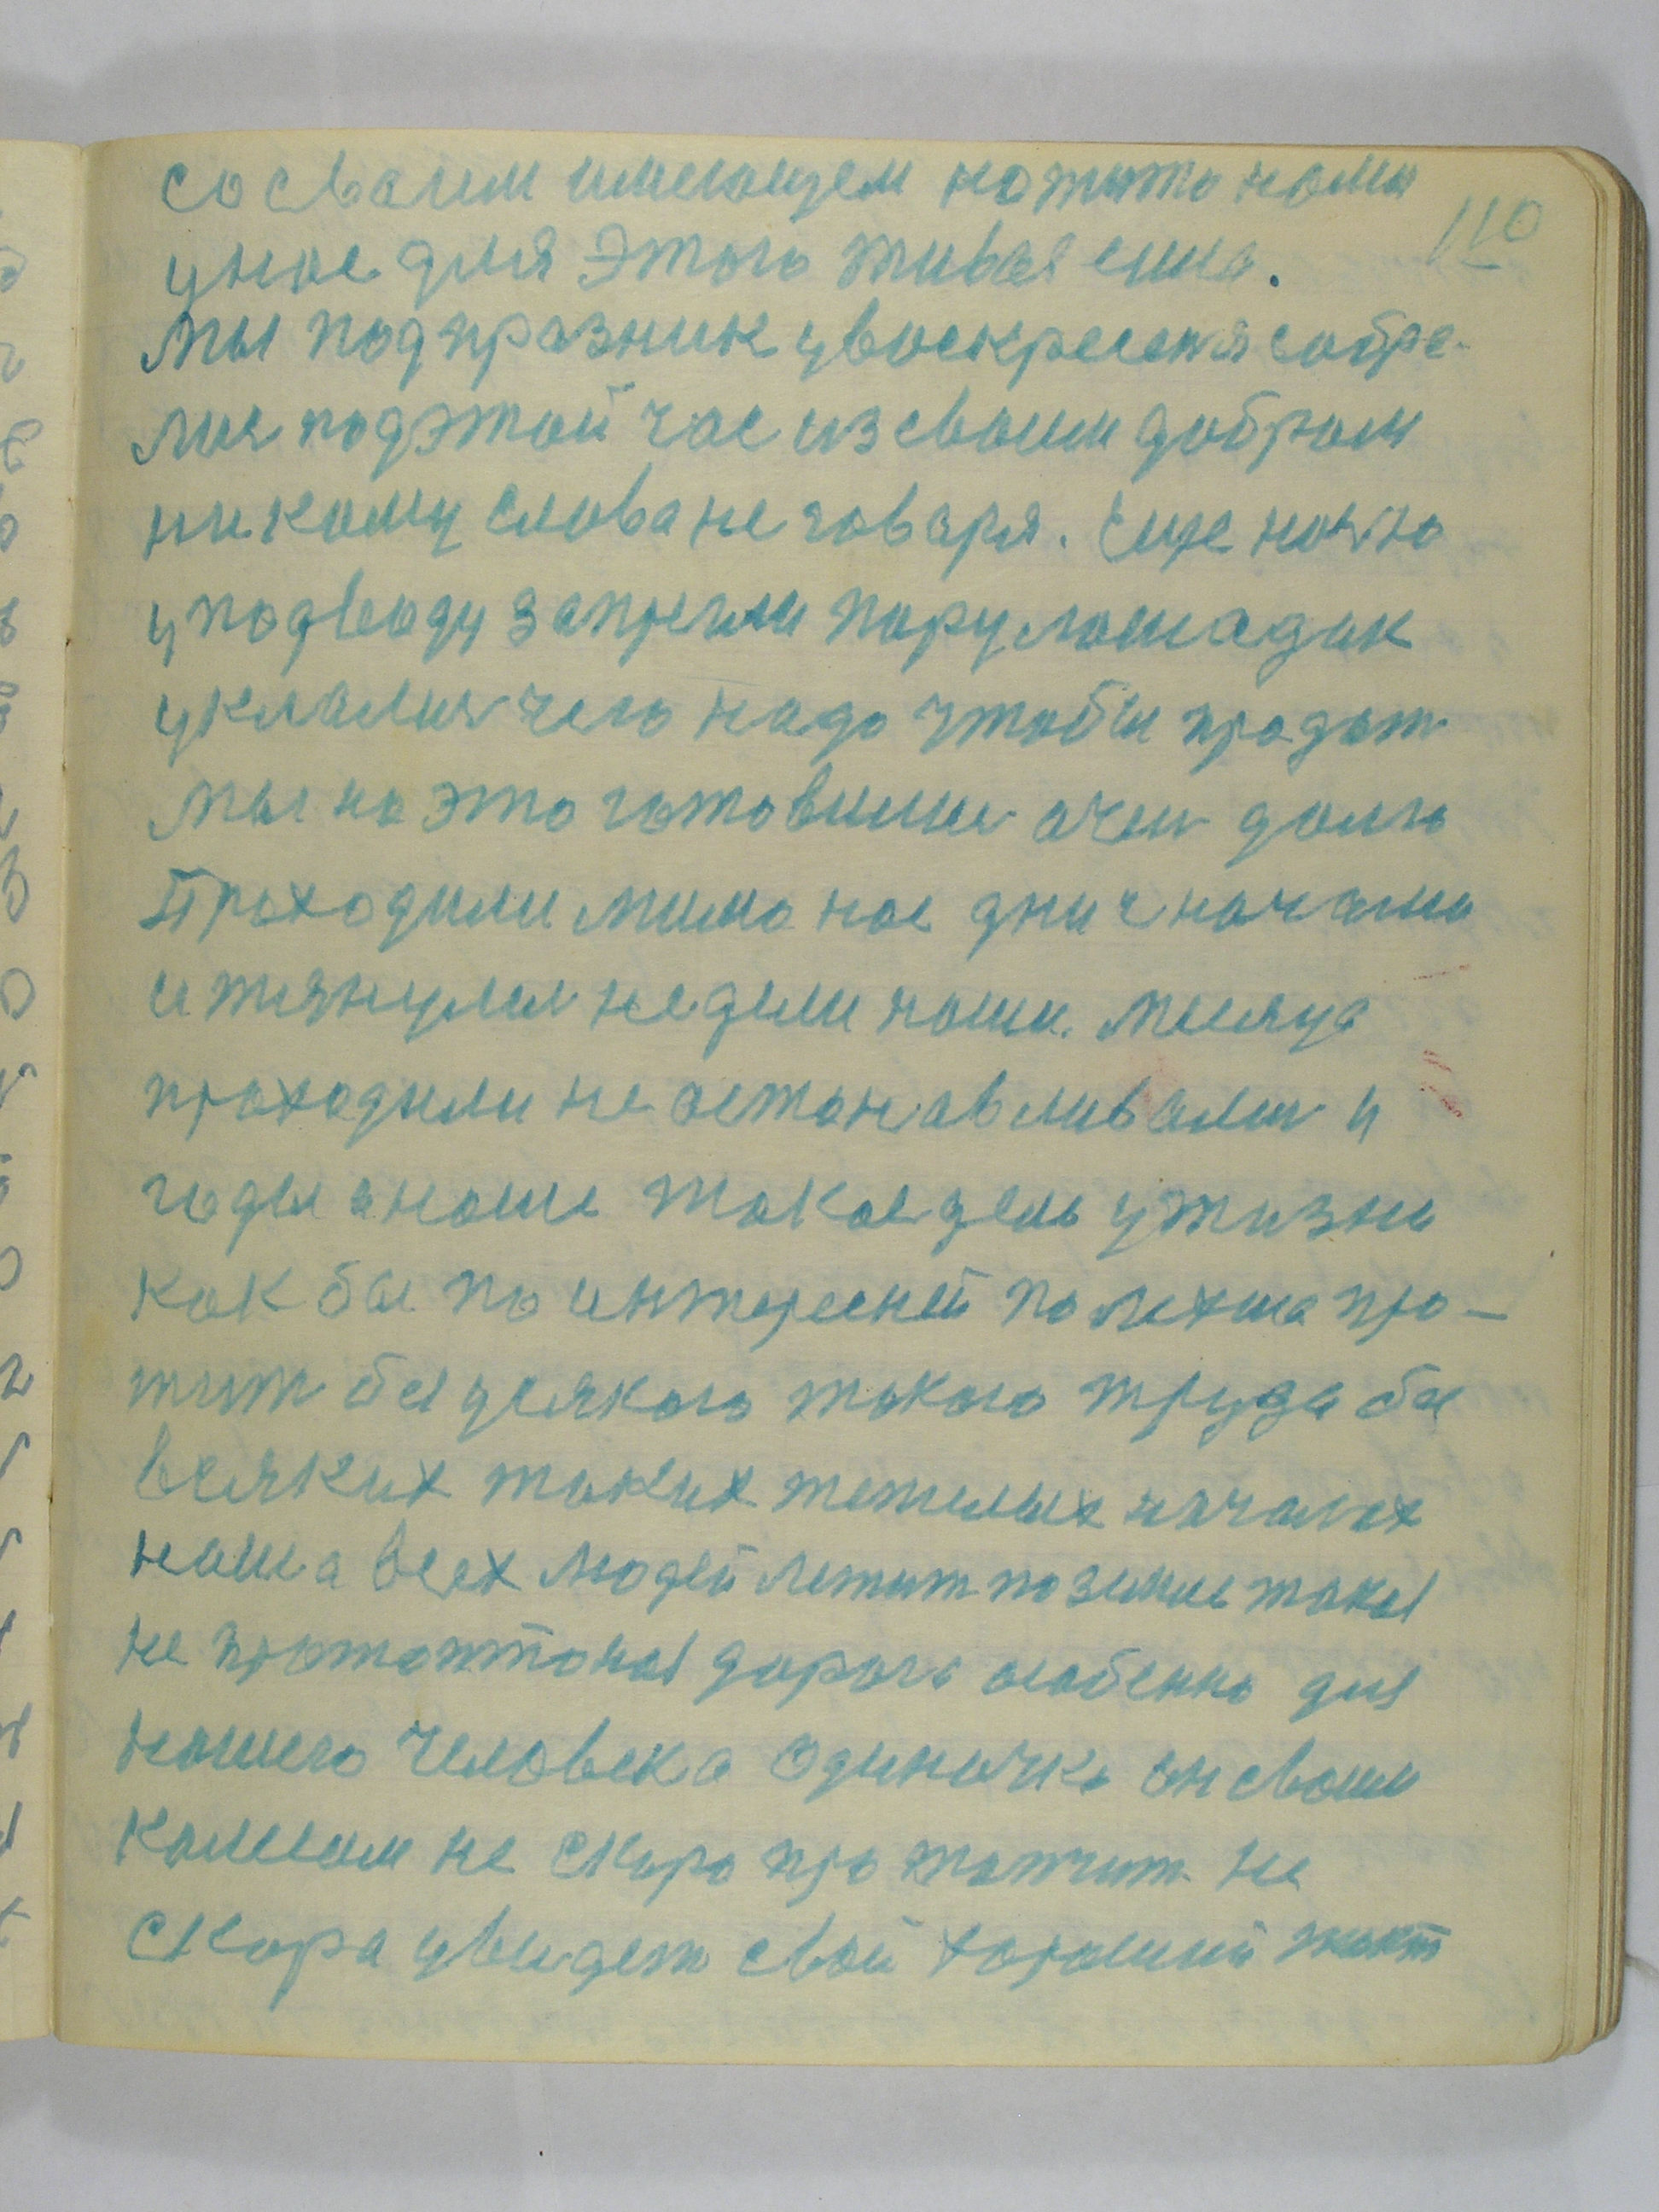 со своим имеющем нажито нами
110
у нас для этого живая сила.
Мы под празник у воскресеня собра-
лис под этой час из своим добром
никому слова не говаря. Еще ночю
у подводу запрегли пару лошадак
уклалис чего надо чтобы продат
мы на это готовилис очен долго
Проходили мимо нас дни с начами
и тянулис недели наши. месяца
проходили не астанавливалис и
годы а наше такое дело у жизни
как бы по интересней по легша про-
жит без усякого такого труда без
всяких таких тежелых началах
наша всех людей лежит по земле такая
не протоптоная дорога особенно для
нашего человека одиначка он своим
колесом не скоро протопчит не
скора увидет свой хороший